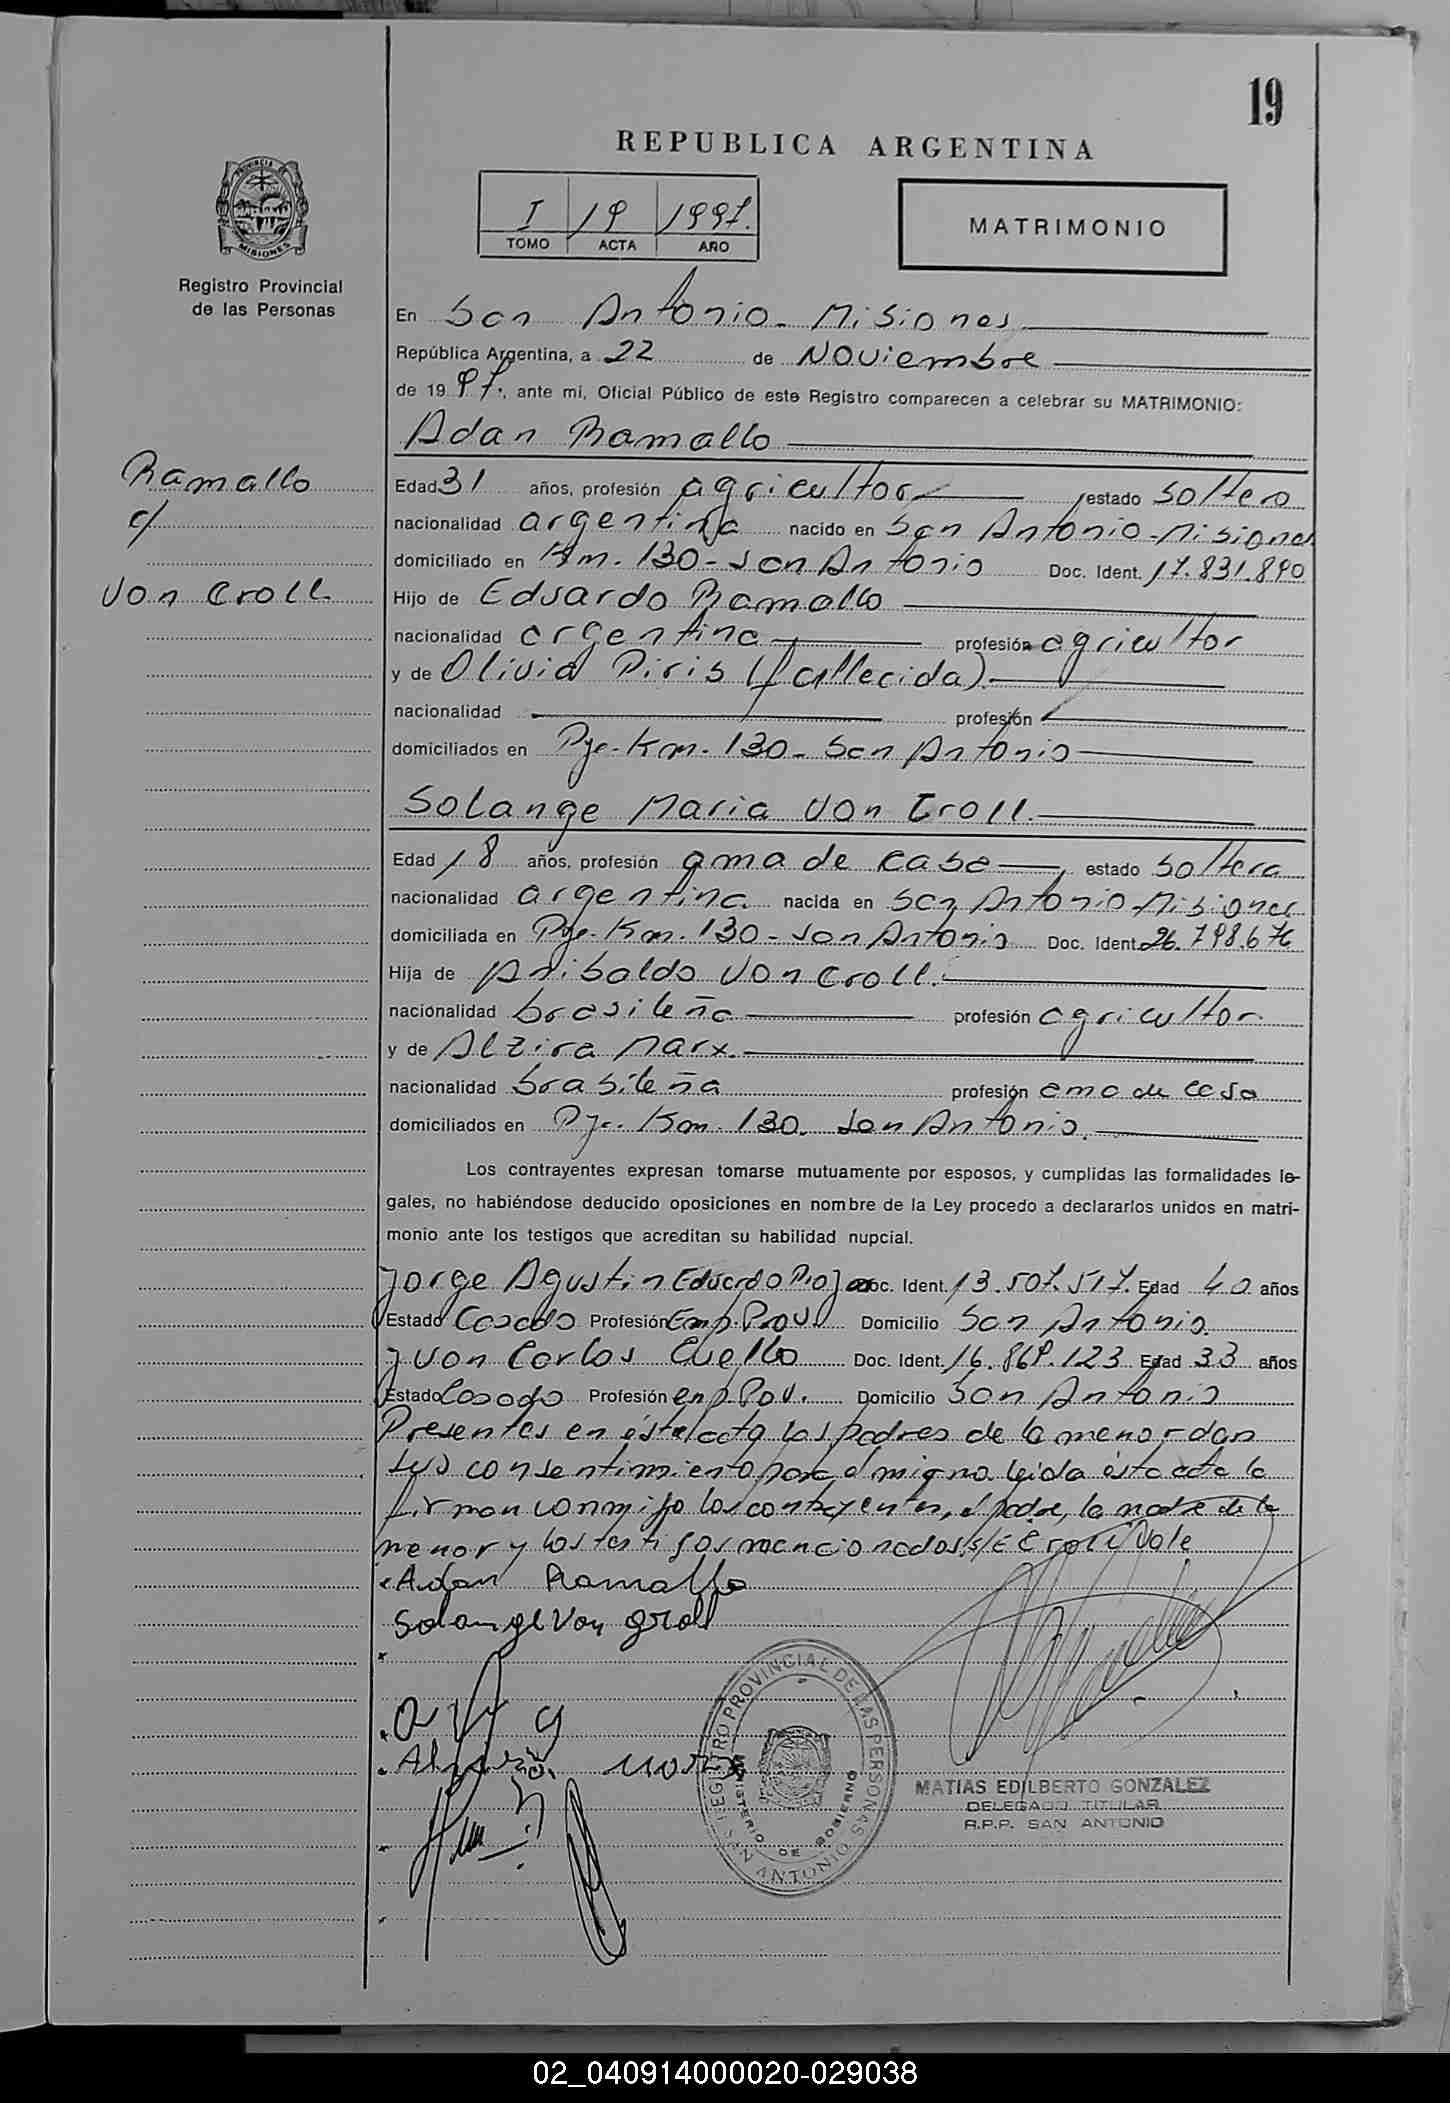 19
REPUBLICA ARGENTINA
I 19 1997.
TOMO ACTA AÑO
MATRIMONIO
PROVINCIA DE
MISIONES
Registro Provincial
de las Personas
En San Antonio - Misiones
República Argentina, a 22 de Noviembre
de 19 97., ante mi, Oficial Público de este Registro comparecen a celebrar su MATRIMONIO:
Adan Ramallo
Ramallo
c/
Von Croll
Edad 31 años, profesión agricultor estado soltero
nacionalidad argentina nacido en San Antonio - Misiones
domiciliado en Km. 130 - San Antonio Doc. Ident. 17.831.890
Hijo de Eduardo Ramallo
nacionalidad argentina profesión agricultor
y de Olivia Piris (fallecida).
nacionalidad profesión
domiciliados en Pje. Km. 130 - San Antonio
Solange Maria Von Croll.
Edad 18 años, profesión ama de casa, estado soltera
nacionalidad argentina nacida en San Antonio - Misiones
domiciliada en Pje. Km. 130 - San Antonio Doc. Ident. 26.798.676
Hija de Anibaldo Von Croll.
nacionalidad brasileña profesión agricultor
y de Alzira Marx.
nacionalidad brasileña profesión ama de casa
domiciliados en Pje. Km. 130. San Antonio.
Los contrayentes expresan tomarse mutuamente por esposos, y cumplidas las formalidades le-
gales, no habiéndose deducido oposiciones en nombre de la Ley procedo a declararlos unidos en matri-
monio ante los testigos que acreditan su habilidad nupcial.
Jorge Agustin Eduardo Doc. Ident. 13.507.517. Edad 40 años
Estado Casado Profesión Emp. Prov. Domicilio San Antonio.
Juan Carlos Cuello Doc. Ident. 16.869.123 Edad 33 años
Estado Casado Profesión emp. Pov. Domicilio San Antonio
Presentes en ésta acta los padres de la menor dan
sus consentimiento para el mismo leida ésta acta la
firman conmigo los contrayentes, el padre, la madre de la
menor y los testigos mencionados. s/E Croll Vale
Adan Ramallo
Solange Von Groll
Alzira Marx
REGISTRO PROVINCIAL DE LAS PERSONAS
MINISTERIO DE GOBIERNO
SAN ANTONIO
MATIAS EDILBERTO GONZALEZ
DELEGADO TITULAR
R.P.P. SAN ANTONIO
02_040914000020-029038